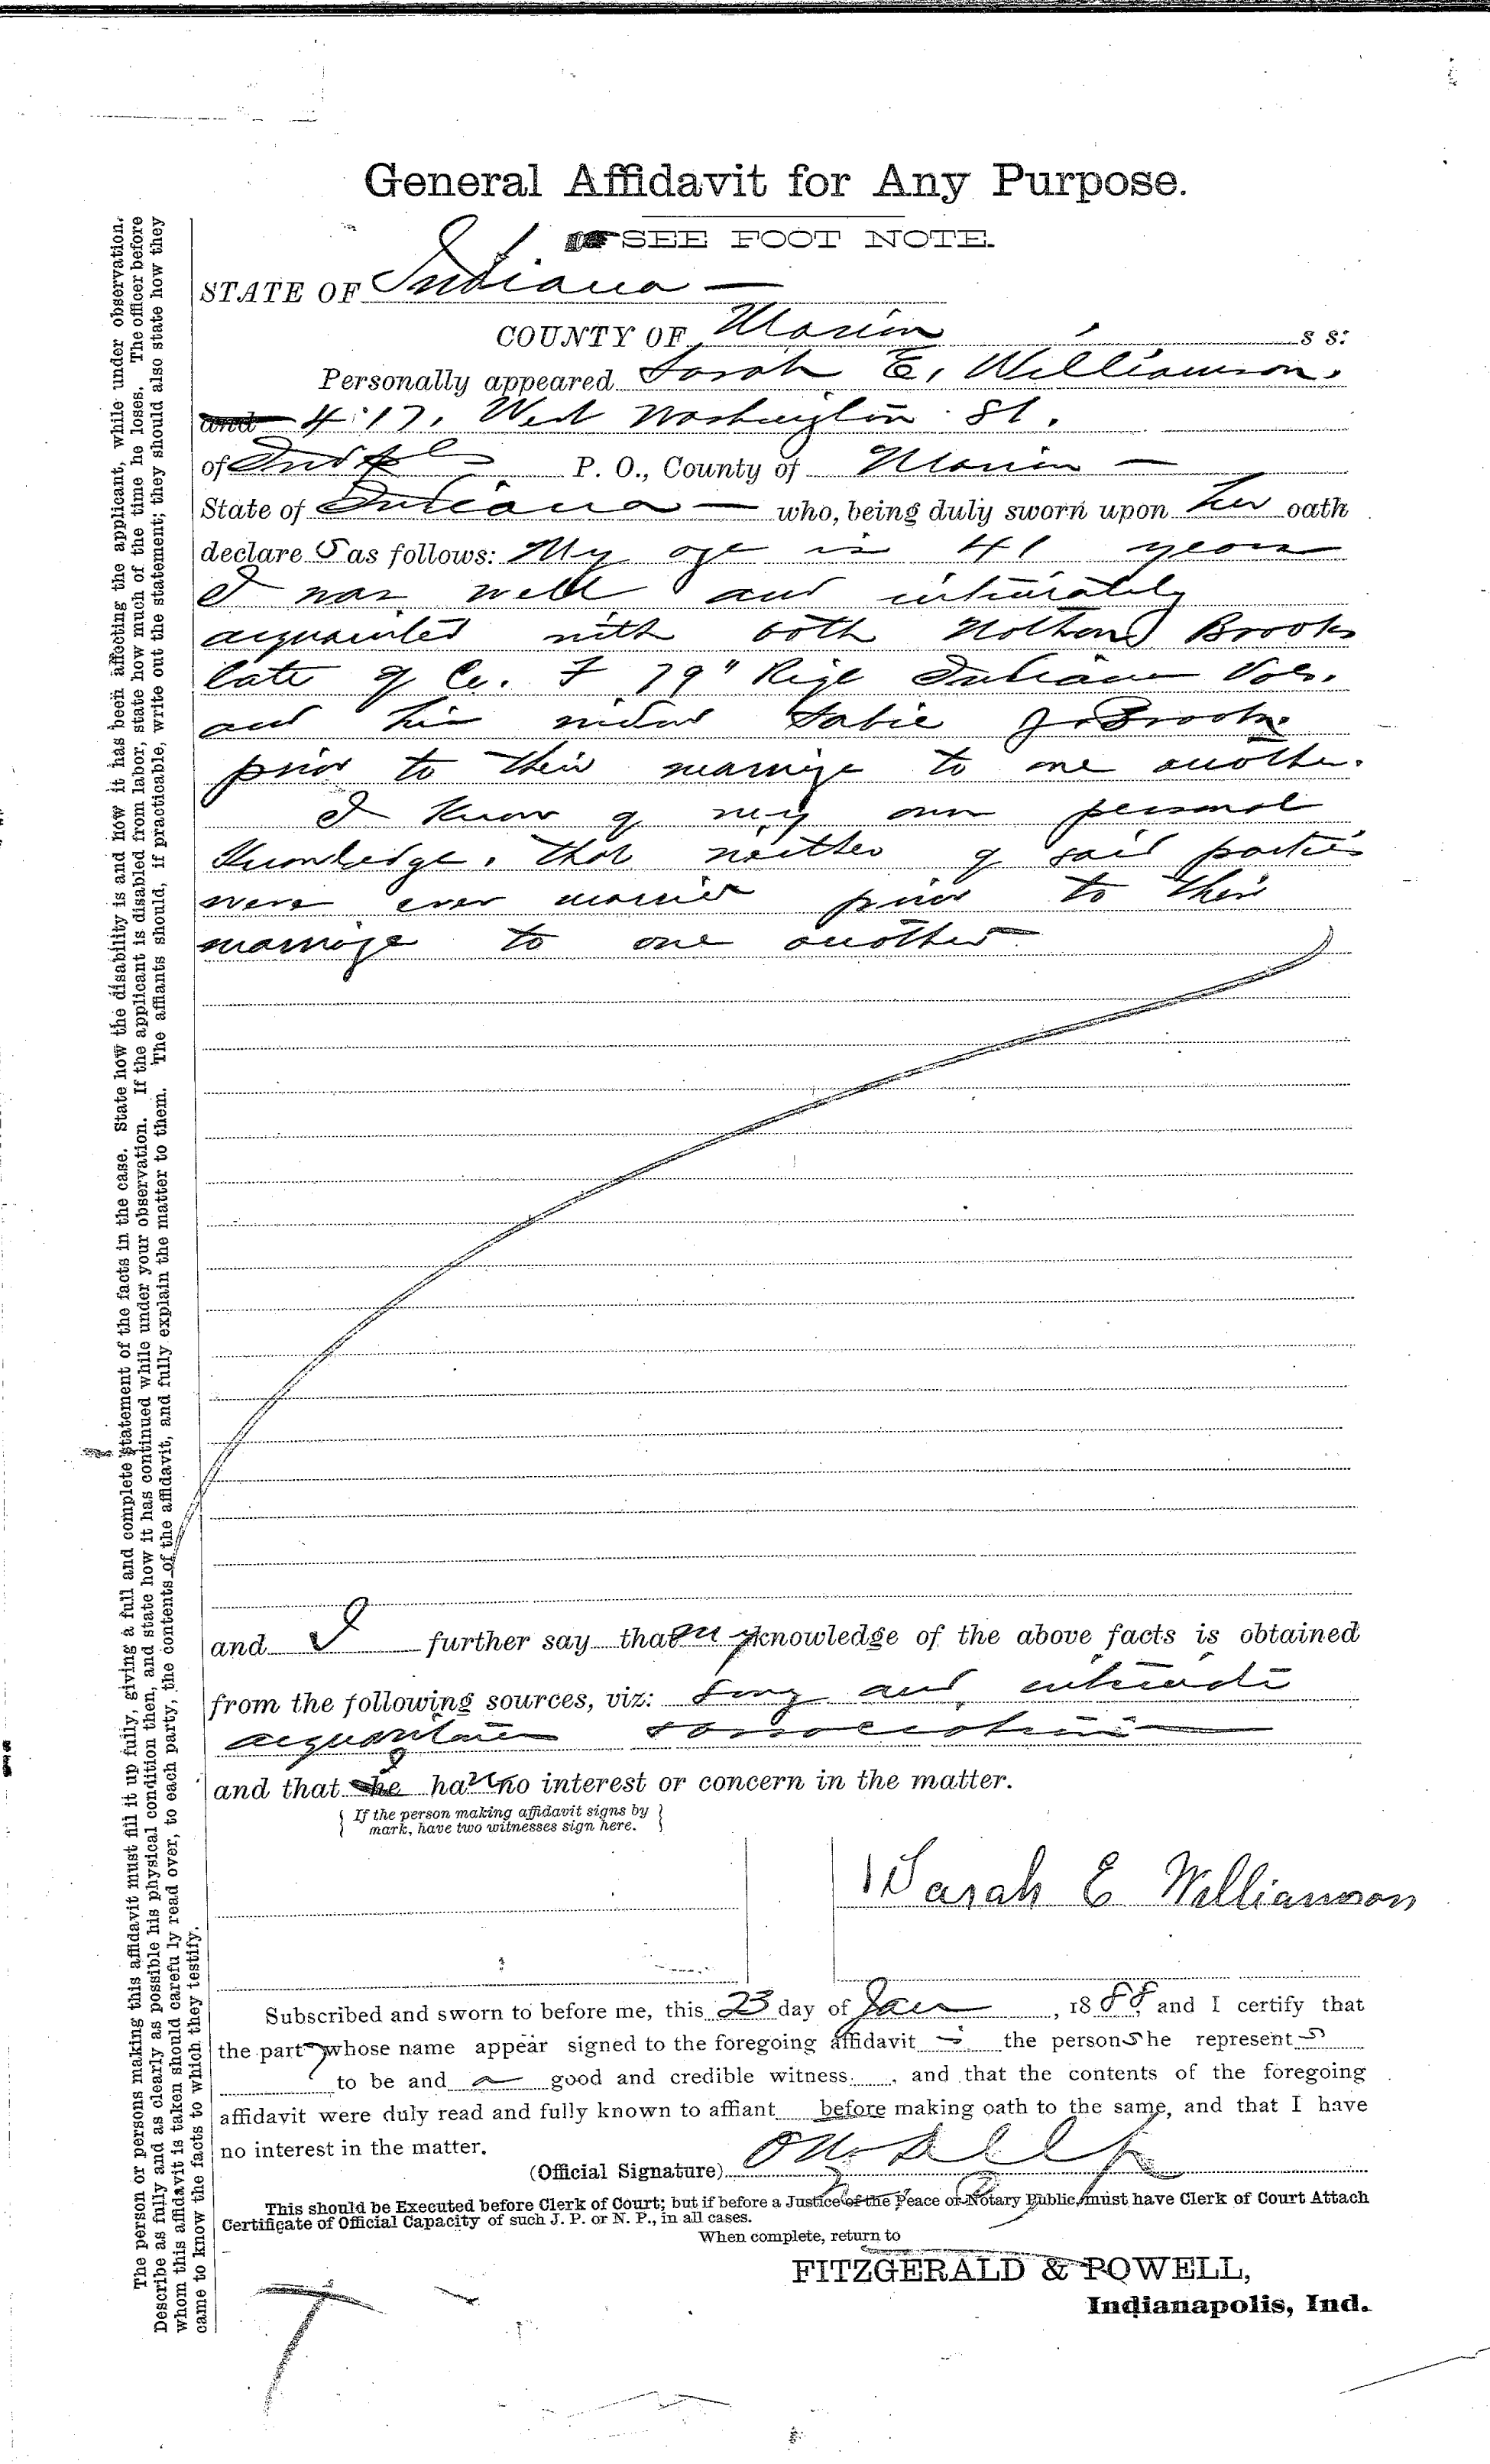 General Affidavit for Any Purpose.
SEE FOOT NOTE.
STATE OF Indiana —
COUNTY OF Marion s s:
Personally appeared Sarah E. Williamson.
and 417. West Washington St.
of Indpls P. O., County of Marion —
State of Indiana — who, being duly sworn upon her oath
declare s as follows: My age is 41 years
I was well and intimately
acquainted with both Nathan Brooks
late of Co. F 79" Regt Indiana Vols.
and his widow Brooks
prior to their marriage to one another.
I know of my own personal
knowledge, that neither of said parties
were ever married prior to their
marriage to one another
and I further say that my knowledge of the above facts is obtained
from the following sources, viz: Long and intimate
acquaintance association
and that I have no interest or concern in the matter.
If the person making affidavit signs by
mark, have two witnesses sign here.
Sarah E Williamson
Subscribed and sworn to before me, this 23 day of Jan , 1888, and I certify that
the party whose name appear signed to the foregoing affidavit is the person she represents
to be and a good and credible witness , and that the contents of the foregoing
affidavit were duly read and fully known to affiant before making oath to the same, and that I have
no interest in the matter.
(Official Signature)
This should be Executed before Clerk of Court; but if before a Justice of the Peace or Notary Public, must have Clerk of Court Attach
Certificate of Official Capacity of such J. P. or N. P., in all cases.
When complete, return to
FITZGERALD & POWELL,
Indianapolis, Ind.
The person or persons making this affidavit must fill it up fully, giving a full and complete statement of the facts in the case. State how the disability is and how it has been affecting the applicant, while under observation.
Describe as fully and as clearly as possible his physical condition then, and state how it has continued while under your observation. If the applicant is disabled from labor, state how much of the time he loses. The officer before
whom this affidavit is taken should carefully read over, to each party, the contents of the affidavit, and fully explain the matter to them. The affiants should, if practicable, write out the statement; they should also state how they
came to know the facts to which they testify.